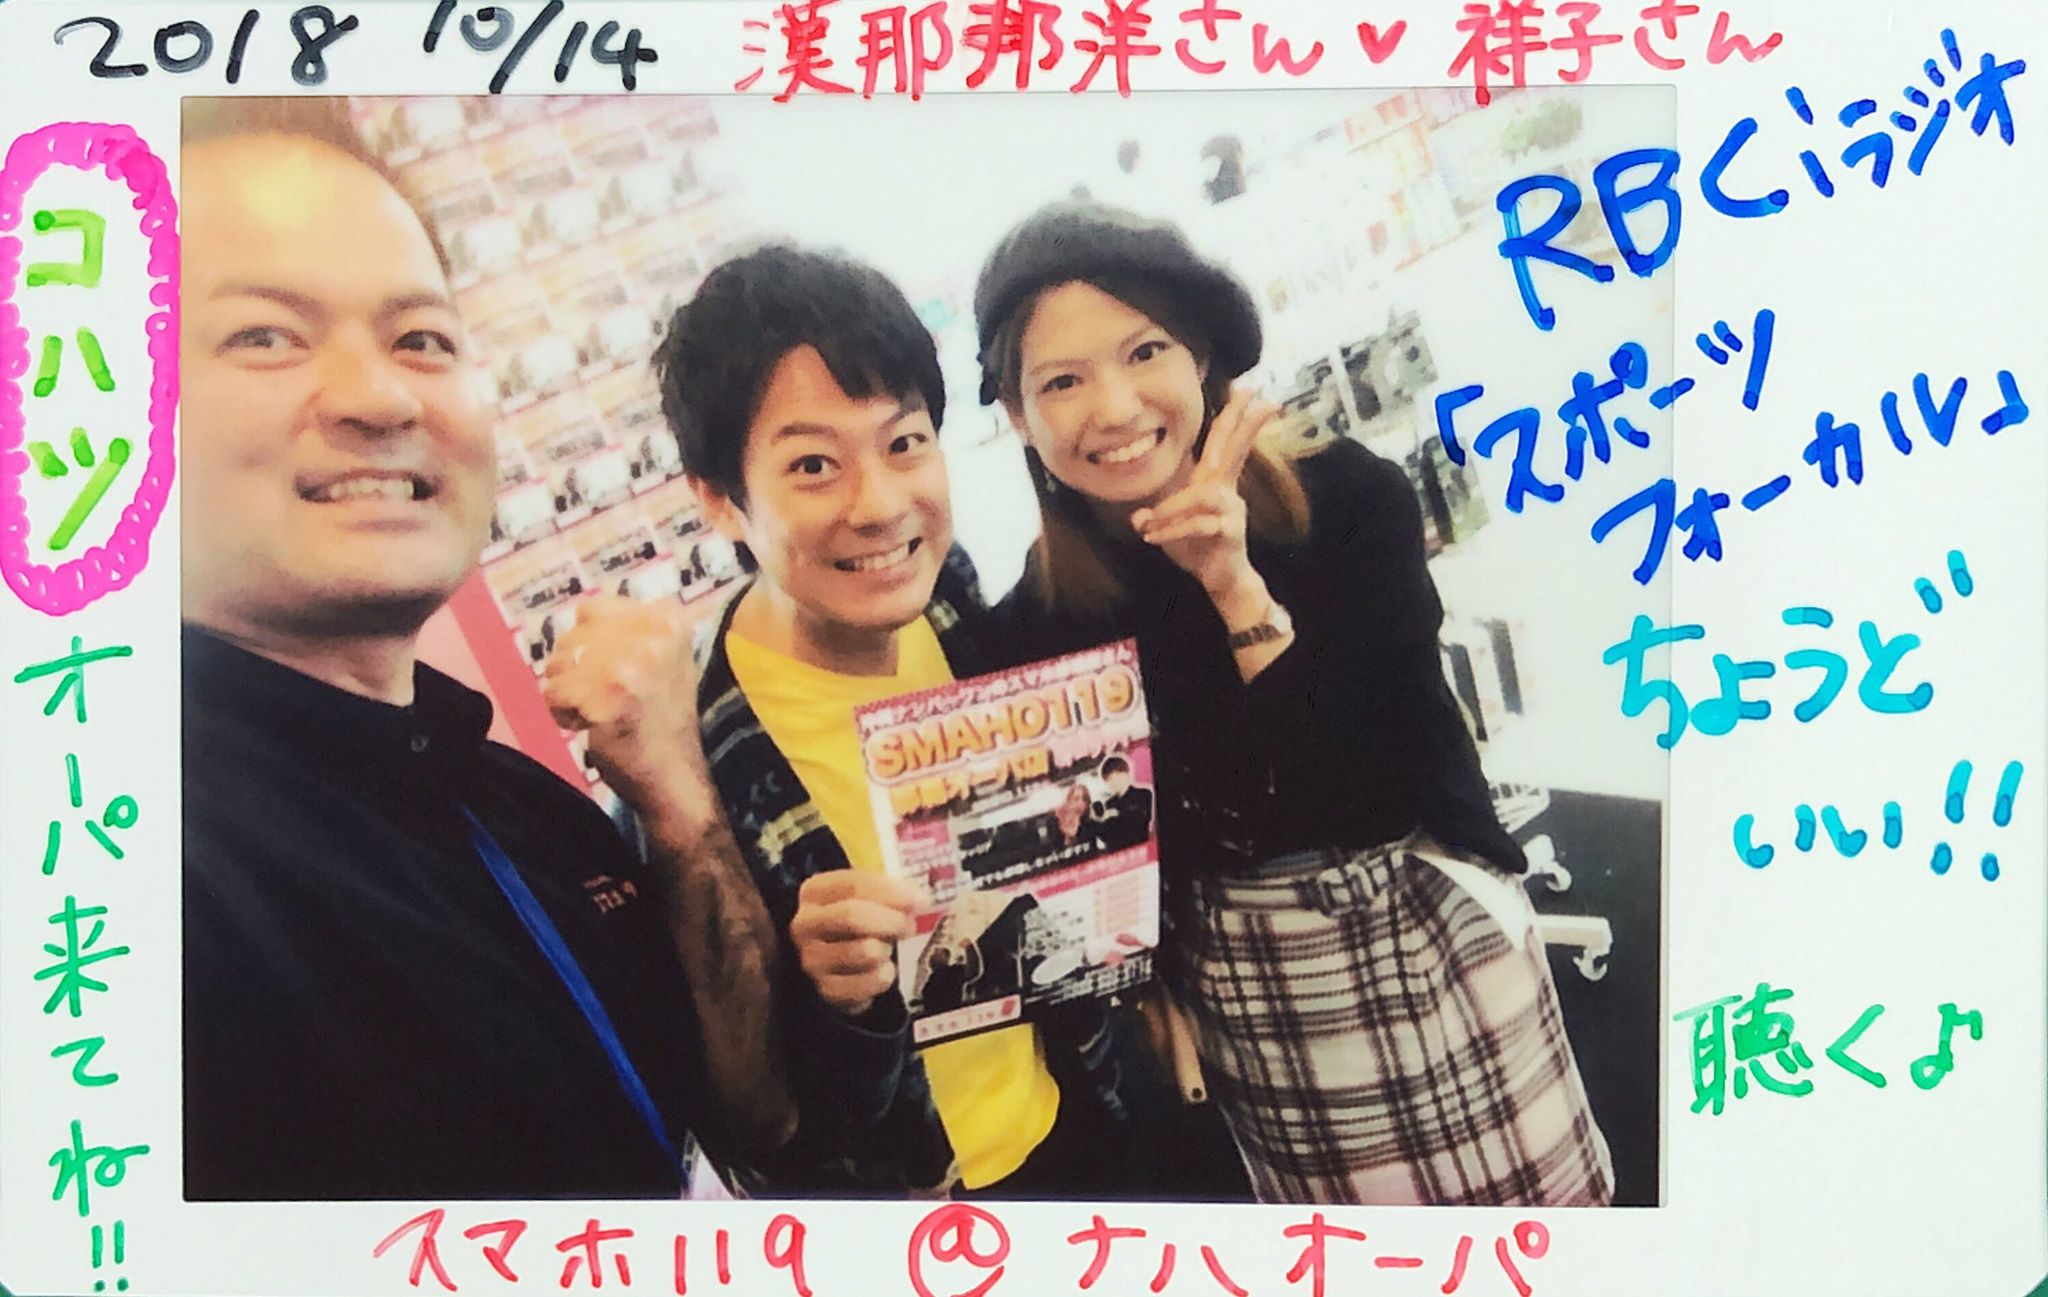 2018 10/14 漢那邦洋さん♥祥子さん
コハツ
オーパ来てね!!
RBCiラジオ
「スポーツ
フォーカル」
ちょうど
いい!!
聴く♪
SMAHO119
那覇オーパ店
スマホ119 @ ナハオーパ